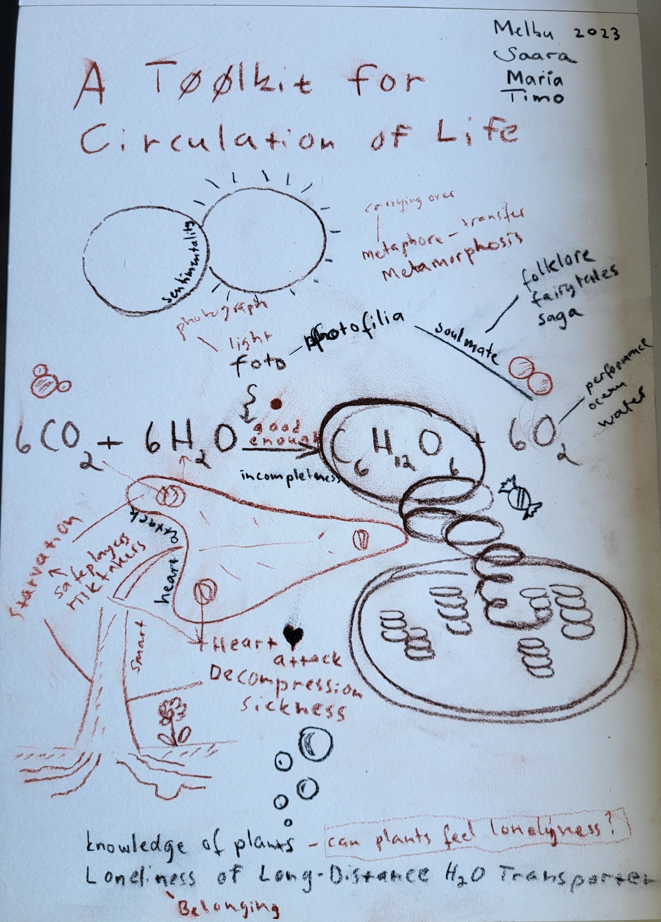 Melbu 2023
Saara
Maria
Timo
A Tøølkit for
Circulation of Life
sentimentality
carrying over
metaphore - transfer
Metamorphosis
photograph
light
foto - photofilia
soulmate
folklore
fairytales
saga
performance
ocean
water
good
enough
6CO2 + 6H2O → C6H12O6 + 6O2
incompleteness
starvation
safeplayers
risktakers
heart
smart
Heart attack
Decompression
sickness
knowledge of plants - can plants feel lonelyness?
Loneliness of Long-Distance H2O Transporter
Belonging